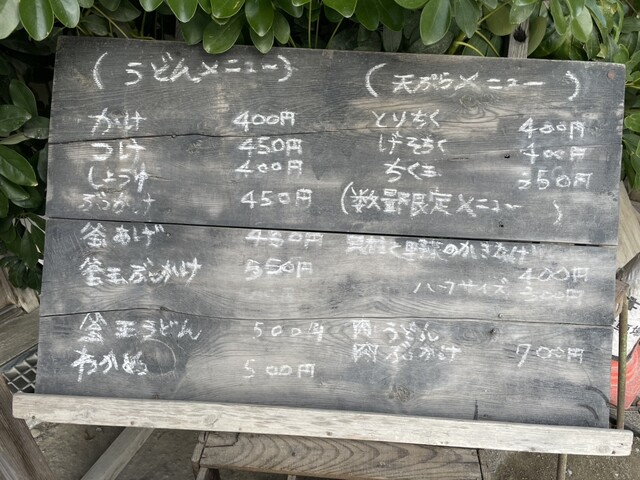 (うどんメニュー)
かけ 400円
つけ 450円
しょうゆ 400円
ぶっかけ 450円
釜あげ 450円
釜玉ぶっかけ 550円
釜玉うどん 500円
わかめ 500円
(天ぷらメニュー)
とりちく 400円
げそちく 400円
ちくわ 250円
(数量限定メニュー)
と野菜のかきあげ 400円
ハーフサイズ 300円
肉うどん
肉ぶっかけ 700円